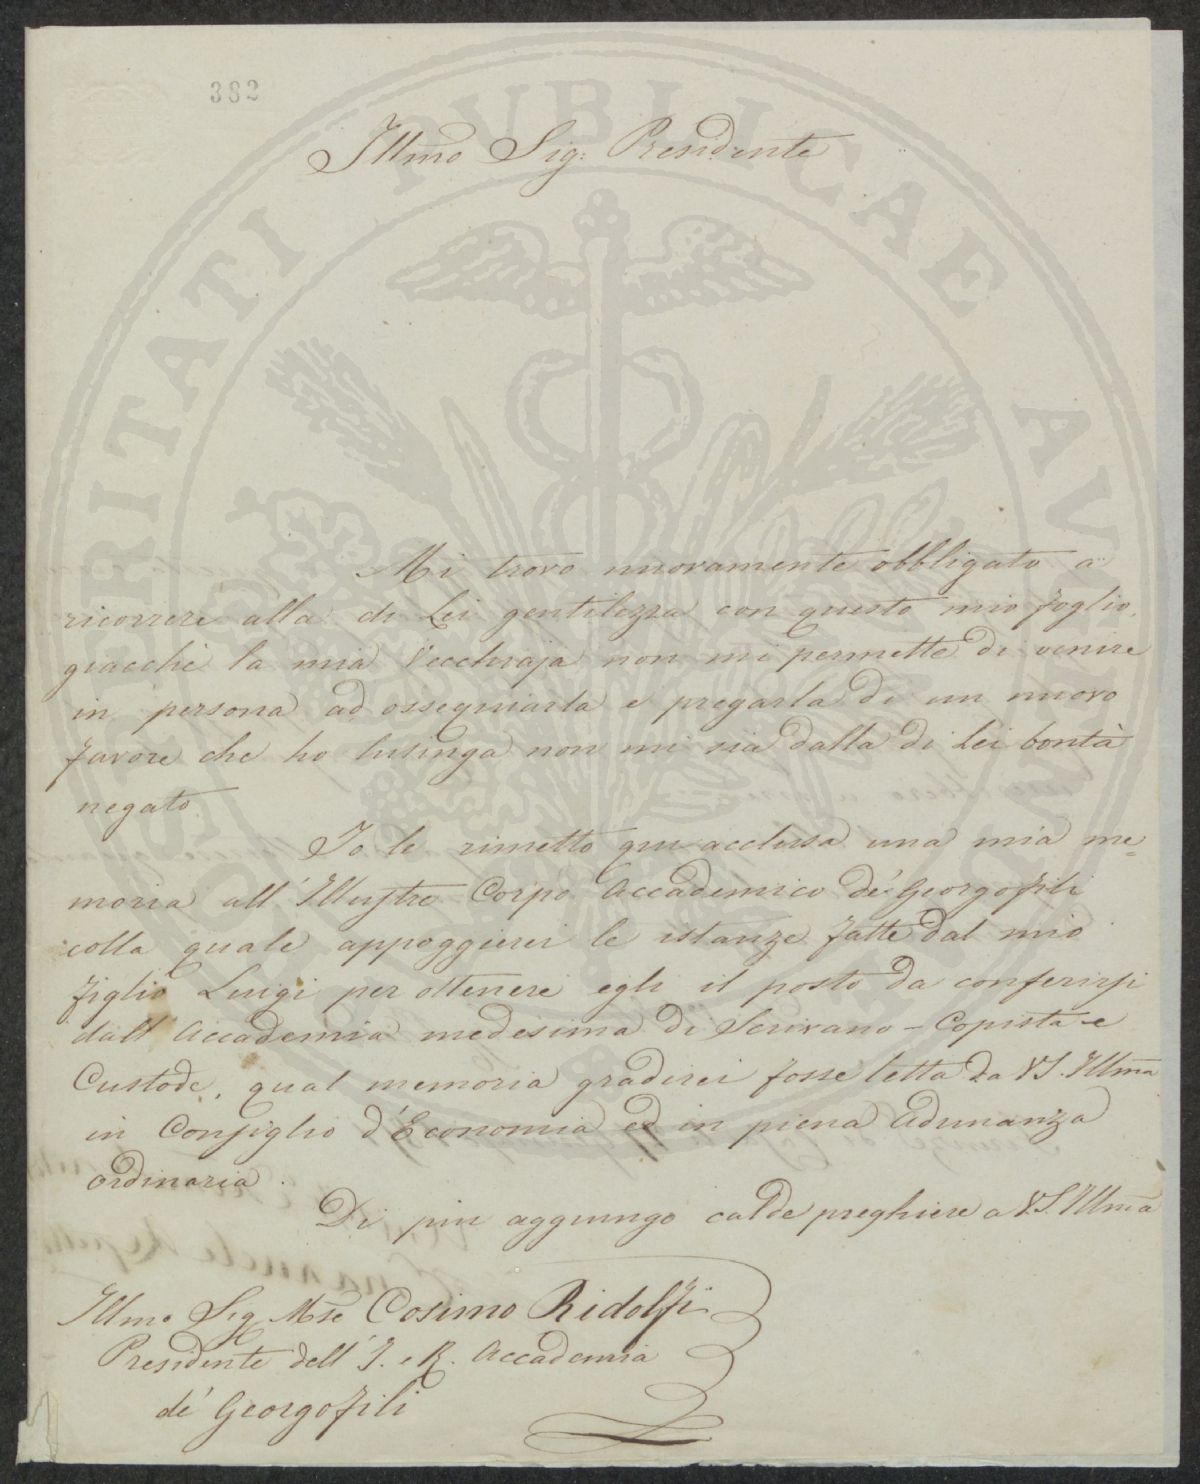 382
Illmo Sig: Presidente
Mi trovo nuovamente obbligato a
ricorrere alla di Lei gentilezza con questo mio foglio,
giacchè la mia Vecchiaja non mi permette di venire
in persona ad ossequiarla e pregarla di un nuovo
favore che ho lusinga non mi sia dalla di Lei bontà
negato.
Io le rimetto qui acclusa una mia me=
moria all'Illustre Corpo Accademico de' Georgofili
colla quale appoggierei le istanze fatte dal mio
figlio Luigi per ottenere egli il posto da conferirsi
dall'Accademia medesima di Scrivano - Copista e
Custode, qual memoria gradirei fosse letta da VS. Illma
in Consiglio d'Economia ed in piena Adunanza
ordinaria.
Di piu aggiungo calde preghiere a VS. Illma
Illmo Sig Mse Cosimo Ridolfi
Presidente dell'I. e R. Accademia
de' Georgofili
PROSPERITATI PUBLICAE AUGENDAE